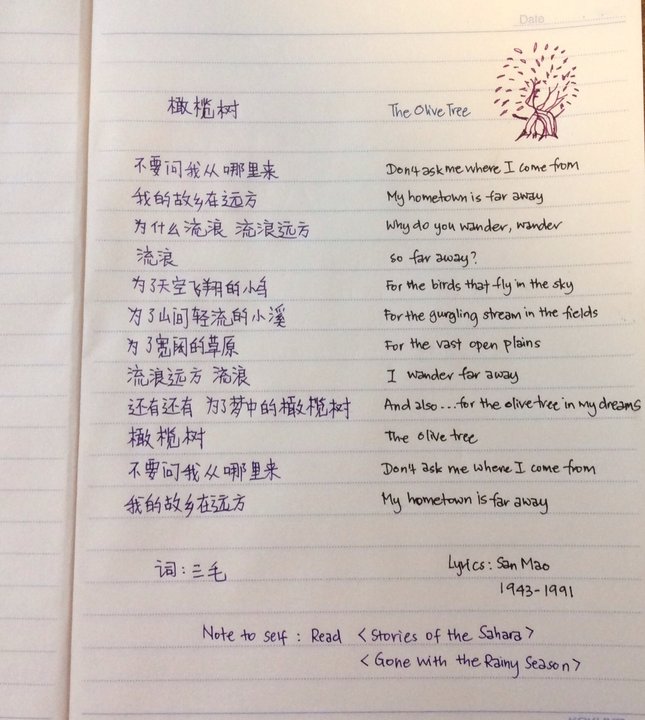 Date
橄榄树 The Olive Tree
不要问我从哪里来 Don't ask me where I come from
我的故乡在远方 My hometown is far away
为什么流浪 流浪远方 Why do you wander, wander
流浪 so far away?
为了天空飞翔的小鸟 For the birds that fly in the sky
为了山间轻流的小溪 For the gurgling stream in the fields
为了宽阔的草原 For the vast open plains
流浪远方 流浪 I wander far away
还有还有 为了梦中的橄榄树 And also...for the olive tree in my dreams
橄榄树 The olive tree
不要问我从哪里来 Don't ask me where I come from
我的故乡在远方 My hometown is far away
词：三毛 Lyrics: San Mao
1943-1991
Note to self: Read <Stories of the Sahara>
<Gone with the Rainy Season>